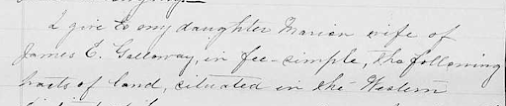 I give to my daughter Marion wife of
James C. Galloway, in fee-simple, the following
tracts of land, situated in the Western